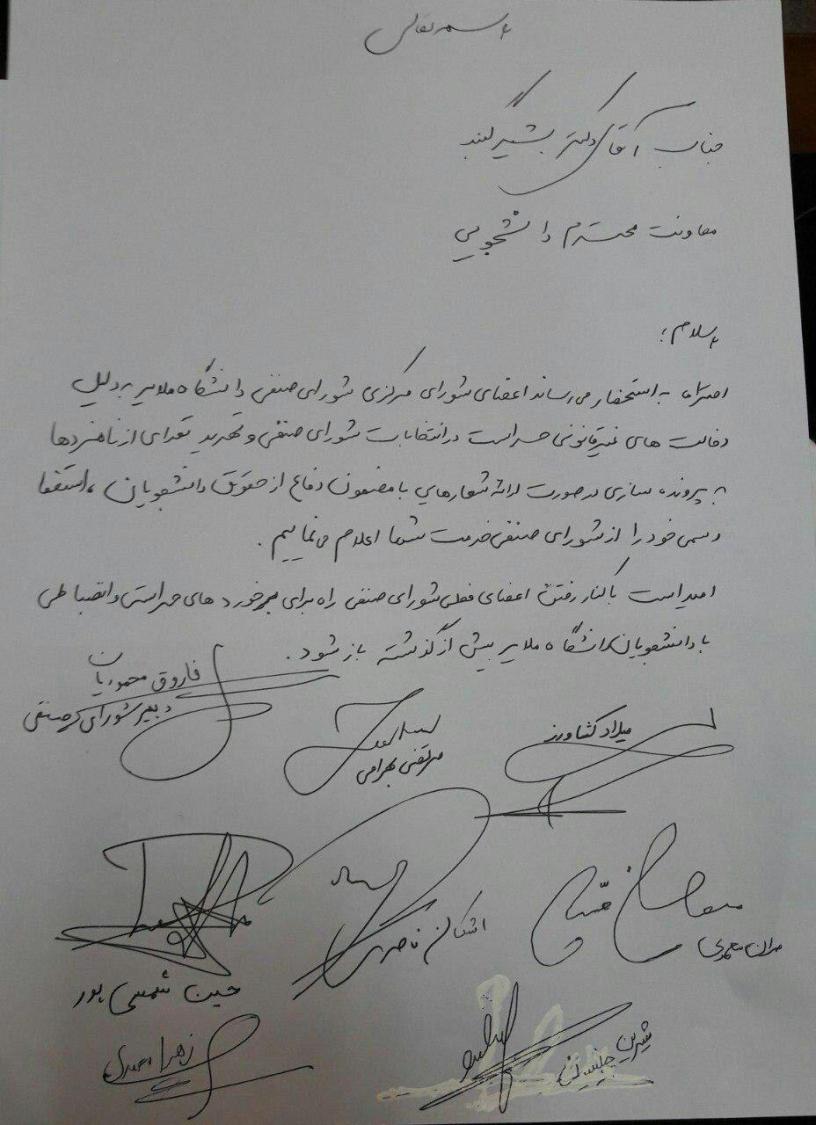 بسمه تعالی
جناب آقای دکتر بشیر گنبد
معاونت محترم دانشجویی
با سلام؛
احتراماً به استحضار می رساند اعضای شورای مرکزی شورای صنفی دانشگاه ملایر به دلیل
دخالت های غیرقانونی حراست در انتخابات شورای صنفی و تهدید تعدادی از نامزدها
به پرونده سازی در صورت ارائه شعارهایی با مضمون دفاع از حقوق دانشجویان، استعفا
رسمی خود را از شورای صنفی خدمت شما اعلام می نماییم.
امید است با کنار رفتن اعضای فعلی شورای صنفی راه برای برخورد های حراستی و انضباطی
با دانشجویان دانشگاه ملایر بیش از گذشته باز شود.
فاروق محمودیان
دبیر شورای صنفی
میلاد کشاورز
مرتضی بهرامی
اشکان ناصری
حسین شمسی پور
شیرین
زهرا